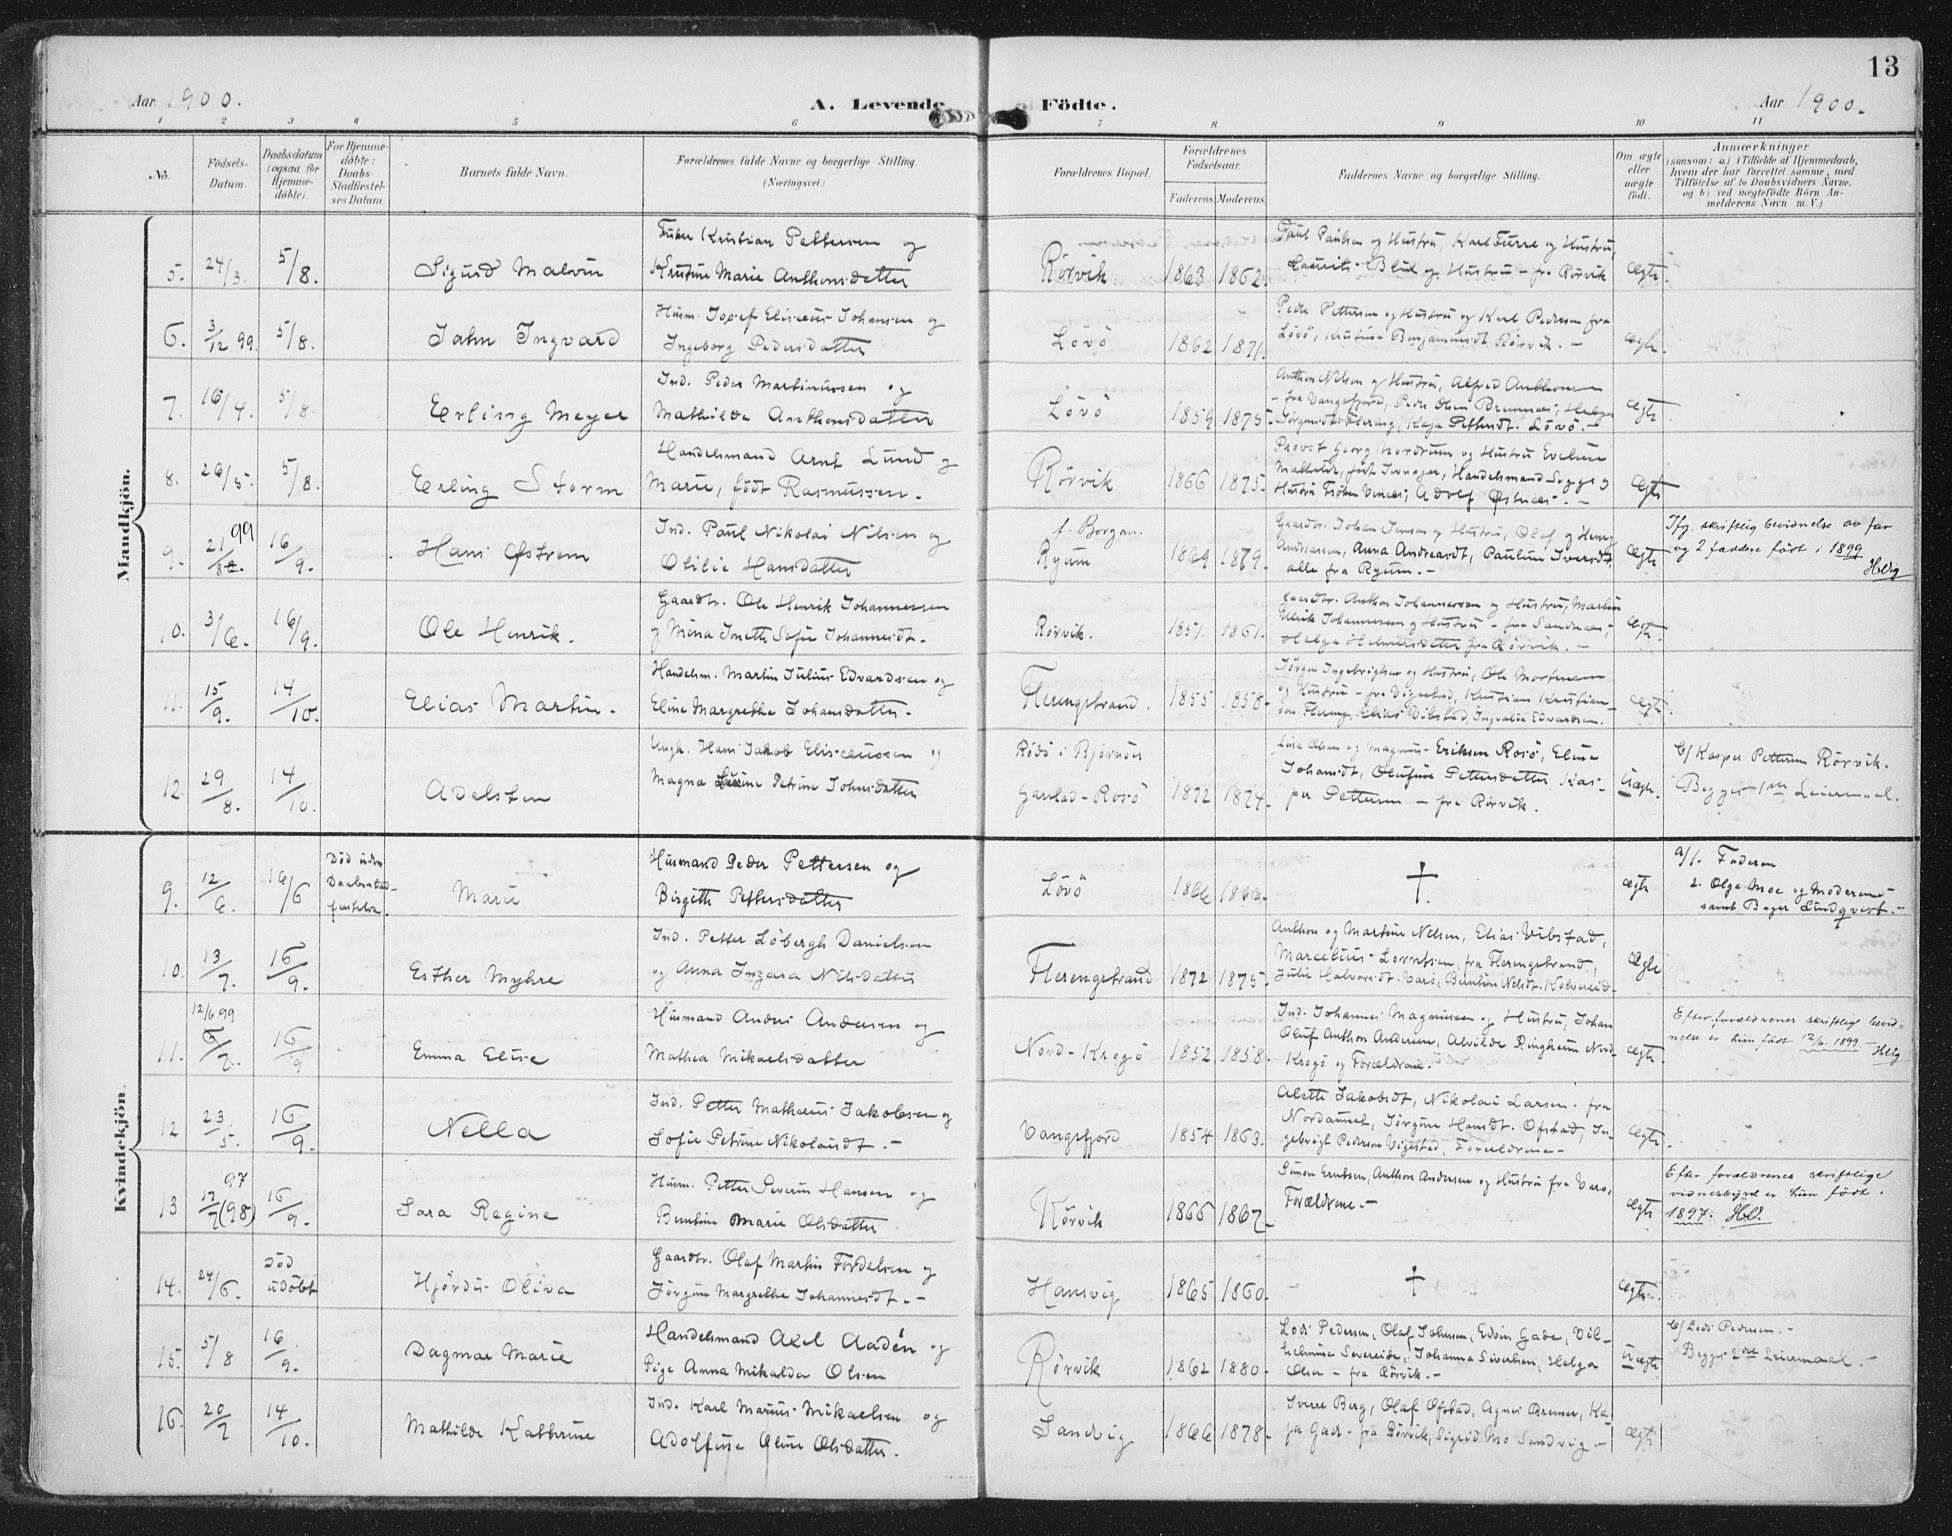 13
Aar 1900.
A. Levende Födte.
Aar 1900.
1 2 3 4 5 6 7 8 9 10 11
No.
Födsels-
Datum.
Daabsdatum
(ogsaa for
Hjemme-
döbte).
For Hjemme-
döbte:
Daabs-
Stadfæstel-
ses Datum.
Barnets fulde Navn.
Forældrenes fulde Navne og borgerlige Stilling.
(Næringsvei.)
Forældrenes Bopæl.
Forældrenes
Födselsaar.
Faderens. Moderens.
Faddernes Navne og borgerlige Stilling.
Om ægte
eller
uægte
født.
Anmærkninger
(saasom: a.) i Tilfælde af Hjemmedaab,
hvem der har forrettet samme, med
Tilföielse af to Daabsvidners Navne.
og b) ved uægtefödte Börn An-
melderens Navn m. V.)
Mandkjön.
5. 24/3. 5/8. Sigurd Malvin
Fisker Kristian Pettersen og
Kristine Marie Anthonsdatter
Rörvik 1863 1862.
Paul Paulsen og Hustru, Karl Furre og Hustru,
Laurits og Hustru – fra Rörvik
Ægte.
6. 3/12 99. 5/8. Jahn Ingvard
Husm. Josef Elisæus Johansen og
Ingeborg Pedersdatter
Lövö 1862 1871.
Peder Pettersen og Hustru og Karl Pedersen fra
Lövö, Kristine Benjaminsdt. Rörvik. –
ægte.
7. 16/4. 5/8. Erling Meyer
Ind. Peder Martinussen og
Mathilde Anthonsdatter
Lövö 1859 1875.
Anthon Nilsen og Hustru, Alfred Anthonsen
– fra Vangsfjord, Peder Olsen Helga
Kaja Pettersdt. Lövö. –
Ægte
8. 26/5. 5/8. Erling Storm
Handelsmand Arnt Lund og
Marie, födt Rasmussen.
Rörvik 1866 1875.
Provst Georg Nordrum og Hustru Eveline
Mathilde, født Handelsmand og
Hustru Fröken Adolf
Ægte
9. 99 21/8. 16/9. Hans Østrem
Ind. Paul Nikolai Nilsen og
Otilie Hansdatter
f. Borgan.
Ryum 1869 1879.
Gaardbr. Johan Jensen og Hustru, Olaf og Henry
Andreassen, Anna Andreasdt, Pauline Iversdt
alle fra Ryum. –
Ægte
Ifg. skriftlig bevidnelse av far
og 2 faddere født i 1899
10. 3/6. 16/9. Ole Henrik.
Gaardbr. Ole Henrik Johannessen
og Mina Jonette Sofie Johannesdt.
Rörvik. 1851. 1861.
Gaardbr. Anthon Johannessen og Hustru, Martin
Ulrik Johannessen og Hustru – fra Sandnes,
Helga fra Rörvik. –
Ægte.
11. 15/9. 14/10. Elias Martin.
Handelsm. Martin Julius Edvardsen og
Eline Margrethe Johansdatter.
Flerengstrand. 1855 1858.
Jörgen Ingebrigtsen og Hustru, Ole Mortensen
og Hustru – fra Vigestad, Kristian Kristian-
sen Flereng, Elias Vibstad, Ingvalda Edvardsen.
Ægte.
12. 29/8. 14/10. Adelsten
Ungk. Hans Jakob Elisæussen og
Magna Petrine Johnsdatter
Rödö i Björnör
Garstad – Rosö 1872 1874.
Olsen og Magnus Eriksen Rosö, Eline
Johansdt, Olufine Pettersdatter Kas-
per Pettersen – fra Rörvik.
Uægte.
b/ Kasper Pettersen Rörvik.
Begges 1ste Leiermaal.
Kvindekjön.
9. 12/6. 16/6
Död uden
Daabsstad-
fæstelse.
Marie
Husmand Peder Pettersen og
Birgitte Pettersdatter
Lövö 1866 1866.
†.
Ægte
a/1. Faderen
2. Olga Moe og Moderens
samt Lindqvist. –
10. 13/7. 16/9. Esther Myhre
Ind. Petter Löbergh Danielsen
og Anna Ingara Nilsdatter
Flerengstrand 1872 1875.
Anthon og Martine Nilsen, Elias Vibstad,
Marcelius Lorntsen, fra Flerengstrand,
Julie Halvorsdt. Varö, Berntine Nilsdt. Kolvereid.
Ægte
11. 12/6 99 16/9 Emma Elise
Husmand Anders Andersen og
Mathea Mikaelsdatter
Nord-Krogö 1852 1858.
Ind. Johannes Magnussen og Hustru, Johan
Oluf Anthon Andersen, Alvilde Ringheim Nord-
Krogö og Forældrene.
Ægte.
Efter forældrenes skriftlige bevid-
nelse er hun født 12/6 1899.
12 23/5. 16/9. Nella
Ind. Petter Mathæus Jakobsen og
Sofie Petrine Nikolaidt. –
Vangsfjord 1854 1863.
Alette Jakobsdt, Nikolai Larsen – fra
Nordaunet, Jörgine Hansdt. Ofstad, In-
gebrigt Pedersen Vigestad, Forældrene –
Ægte.
13 97 12/7 (98) 16/9. Sara Regine
Husm. Petter Severin Hansen og
Berntine Marie Olsdatter
Rörvik 1866 1867.
Simon Erntsen, Anthon Andersen og Hustru fra Varö,
Forældrene. –
Ægte
Efter forældrenes skriftlige
vidnesbyrd er hun født.
1897.
14. 24/6.
Död
udöbt
Hjördis Oliva
Gaardbr. Olaf Martin Fordelsen og
Jörgine Margrethe Johannesdt. –
Hansvig 1865 1860.
– †
Ægte.
15. 5/8 16/9. Dagmar Marie
Handelsmand Axel Aadén og
Pige Anna Mikalda Olsen
Rörvik 1862 1880.
Lodi Pedersen, Olaf Johnsen, Edvin Gade, Vil-
helmine Severeide, Johanna Sivertsen, Helga
Olsen – fra Rörvik. –
Uægte
b/ Lodi Pedersen. –
Begges 2det Leiermaal. –
16. 20/7 14/10. Mathilde Kathrine
Ind. Karl Marius Mikaelsen og
Adolfine Oline Olsdatter.
Sandvig 1866 1878.
Sverre Berg, Olaf Ofstad, Agnes Bremer, Ka-
ja Gade – fra Rörvik, Sigrid Mo Sandvig –
Ægte